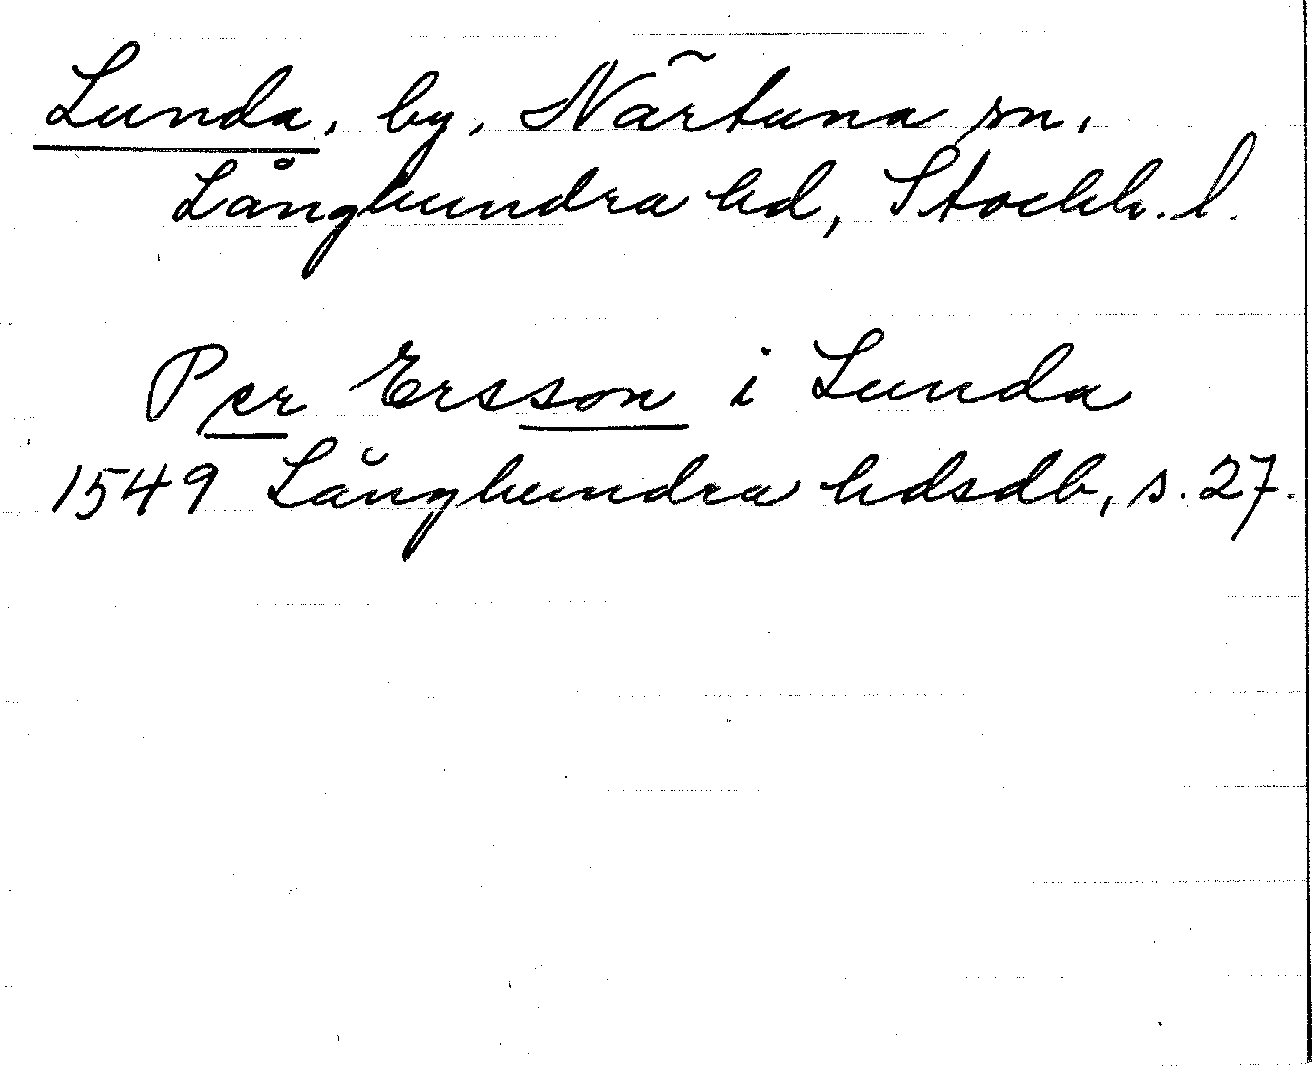 Lunda, by, Närtuna sn,
Långhundra hd, Stockh. l.
Per Ersson i Lunda
1549 Långhundra hdsdb, s. 27.